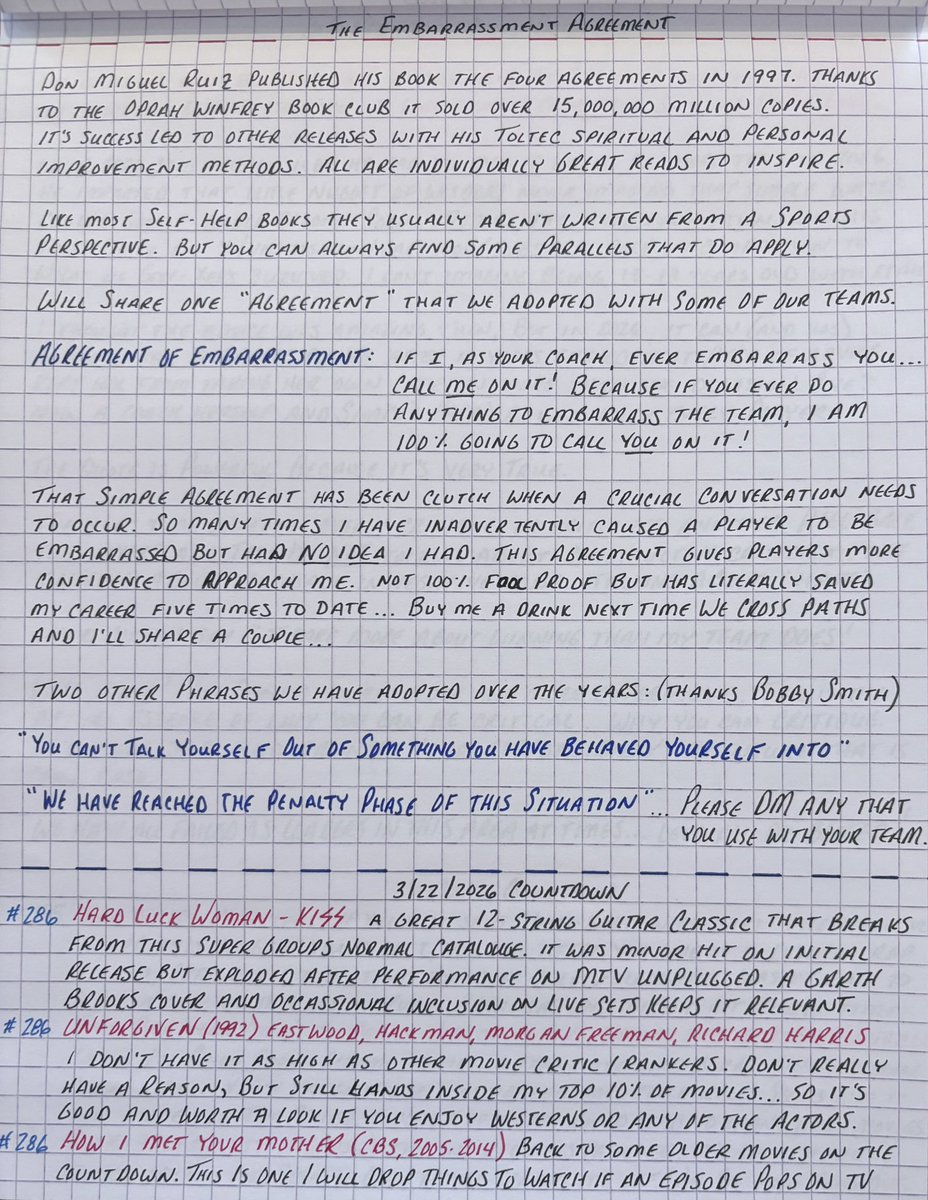 THE EMBARRASSMENT AGREEMENT
DON MIGUEL RUIZ PUBLISHED HIS BOOK THE FOUR AGREEMENTS IN 1997. THANKS
TO THE OPRAH WINFREY BOOK CLUB IT SOLD OVER 15,000,000 MILLION COPIES.
IT'S SUCCESS LED TO OTHER RELEASES WITH HIS TOLTEC SPIRITUAL AND PERSONAL
IMPROVEMENT METHODS. ALL ARE INDIVIDUALLY GREAT READS TO INSPIRE.
LIKE MOST SELF-HELP BOOKS THEY USUALLY AREN'T WRITTEN FROM A SPORTS
PERSPECTIVE. BUT YOU CAN ALWAYS FIND SOME PARALLELS THAT DO APPLY.
WILL SHARE ONE "AGREEMENT" THAT WE ADOPTED WITH SOME OF OUR TEAMS.
AGREEMENT OF EMBARRASSMENT: IF I, AS YOUR COACH, EVER EMBARRASS YOU...
CALL ME ON IT! BECAUSE IF YOU EVER DO
ANYTHING TO EMBARRASS THE TEAM, I AM
100% GOING TO CALL YOU ON IT!
THAT SIMPLE AGREEMENT HAS BEEN CLUTCH WHEN A CRUCIAL CONVERSATION NEEDS
TO OCCUR. SO MANY TIMES I HAVE INADVERTENTLY CAUSED A PLAYER TO BE
EMBARRASSED BUT HAD NO IDEA I HAD. THIS AGREEMENT GIVES PLAYERS MORE
CONFIDENCE TO APPROACH ME. NOT 100% FOOL PROOF BUT HAS LITERALLY SAVED
MY CAREER FIVE TIMES TO DATE... BUY ME A DRINK NEXT TIME WE CROSS PATHS
AND I'LL SHARE A COUPLE...
TWO OTHER PHRASES WE HAVE ADOPTED OVER THE YEARS: (THANKS BOBBY SMITH)
"YOU CAN'T TALK YOURSELF OUT OF SOMETHING YOU HAVE BEHAVED YOURSELF INTO"
"WE HAVE REACHED THE PENALTY PHASE OF THIS SITUATION"... PLEASE DM ANY THAT
YOU USE WITH YOUR TEAM.
3/22/2026 COUNTDOWN
#286 HARD LUCK WOMAN - KISS A GREAT 12-STRING GUITAR CLASSIC THAT BREAKS
FROM THIS SUPER GROUPS NORMAL CATALOUGE. IT WAS MINOR HIT ON INITIAL
RELEASE BUT EXPLODED AFTER PERFORMANCE ON MTV UNPLUGGED. A GARTH
BROOKS COVER AND OCCASSIONAL INCLUSION ON LIVE SETS KEEPS IT RELEVANT.
#286 UNFORGIVEN (1992) EASTWOOD, HACKMAN, MORGAN FREEMAN, RICHARD HARRIS
I DON'T HAVE IT AS HIGH AS OTHER MOVIE CRITIC/RANKERS. DON'T REALLY
HAVE A REASON, BUT STILL LANDS INSIDE MY TOP 10% OF MOVIES... SO IT'S
GOOD AND WORTH A LOOK IF YOU ENJOY WESTERNS OR ANY OF THE ACTORS.
#286 HOW I MET YOUR MOTHER (CBS, 2005-2014) BACK TO SOME OLDER MOVIES ON THE
COUNTDOWN. THIS IS ONE I WILL DROP THINGS TO WATCH IF AN EPISODE POPS ON TV